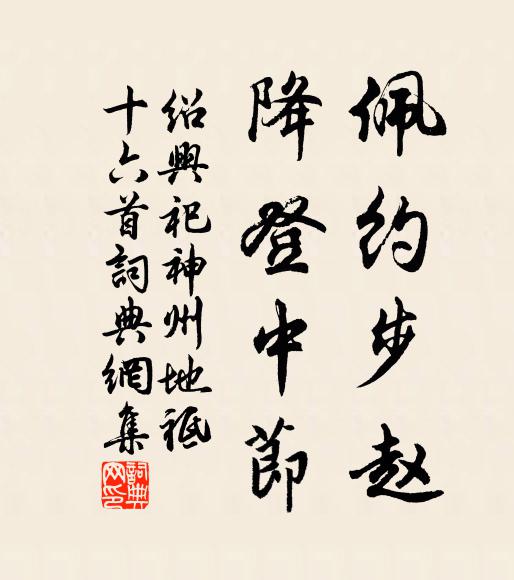 佩约步赵
降登中節
绍興祀神州地祇
十六首詞典網集
詞典网印